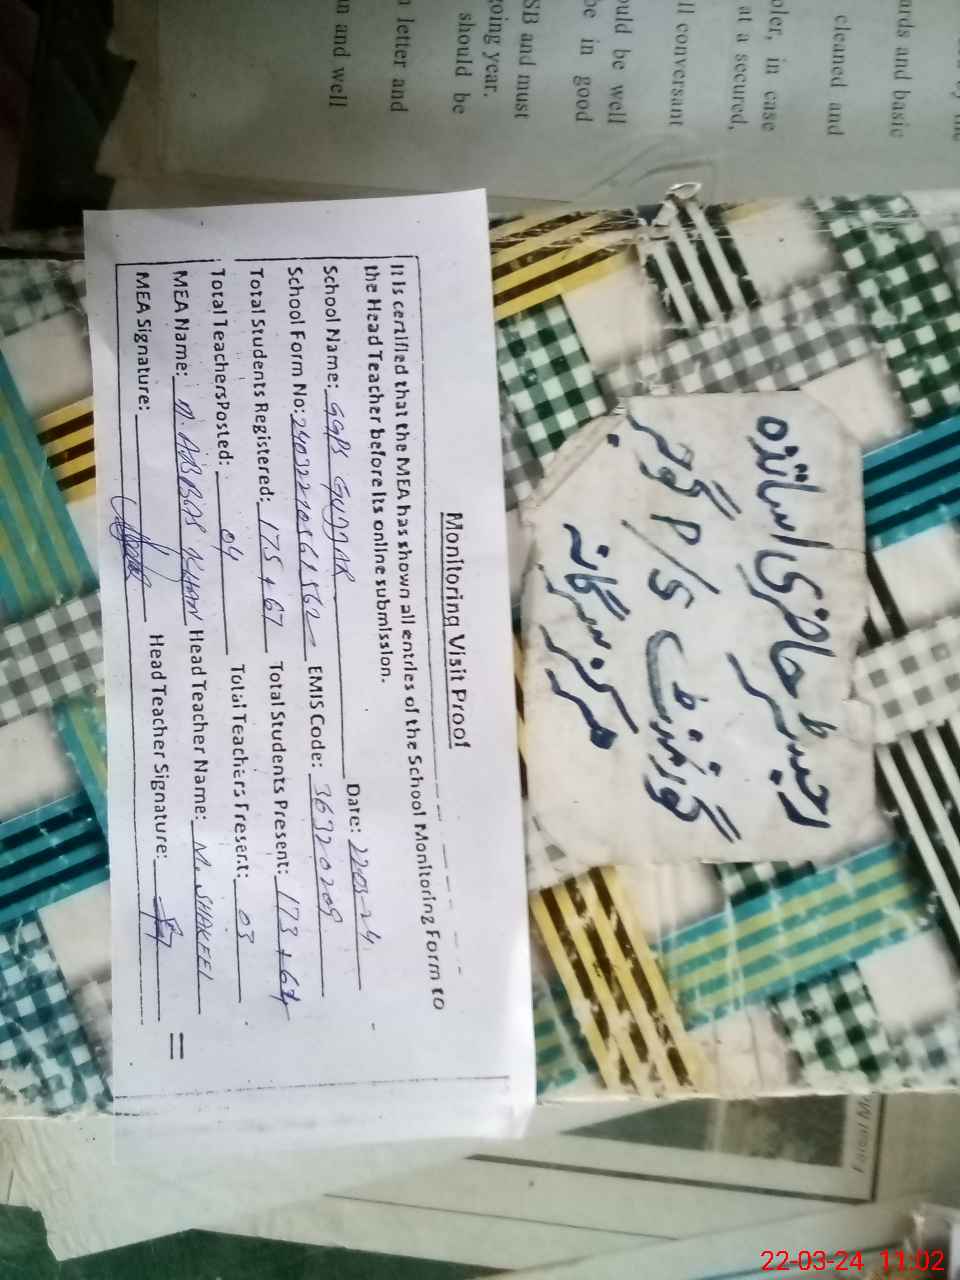 ards and basic
cleaned and
oler, in case
at a secured,
ll conversant
ould be well
be in good
SB and must
going year.
should be
letter and
n and well
Monitoring Visit Proof
It is certified that the MEA has shown all entries of the School Monitoring Form to
the Head Teacher before its online submission.
School Name: GGPS GUJJAR Date: 22-03-24
School Form No: EMIS Code: 36320209
Total Students Registered: 175 + 67 Total Students Present: 173 + 64
Total Teachers Posted: 04 Total Teachers Present: 03
MEA Name: M. ABBAS KHAN Head Teacher Name: M. SHAKEEL
MEA Signature: Head Teacher Signature:
رجسٹر حاضری اساتذہ
گورنمنٹ P/S گوجر
مرکز سرگانہ
22-03-24 11:02